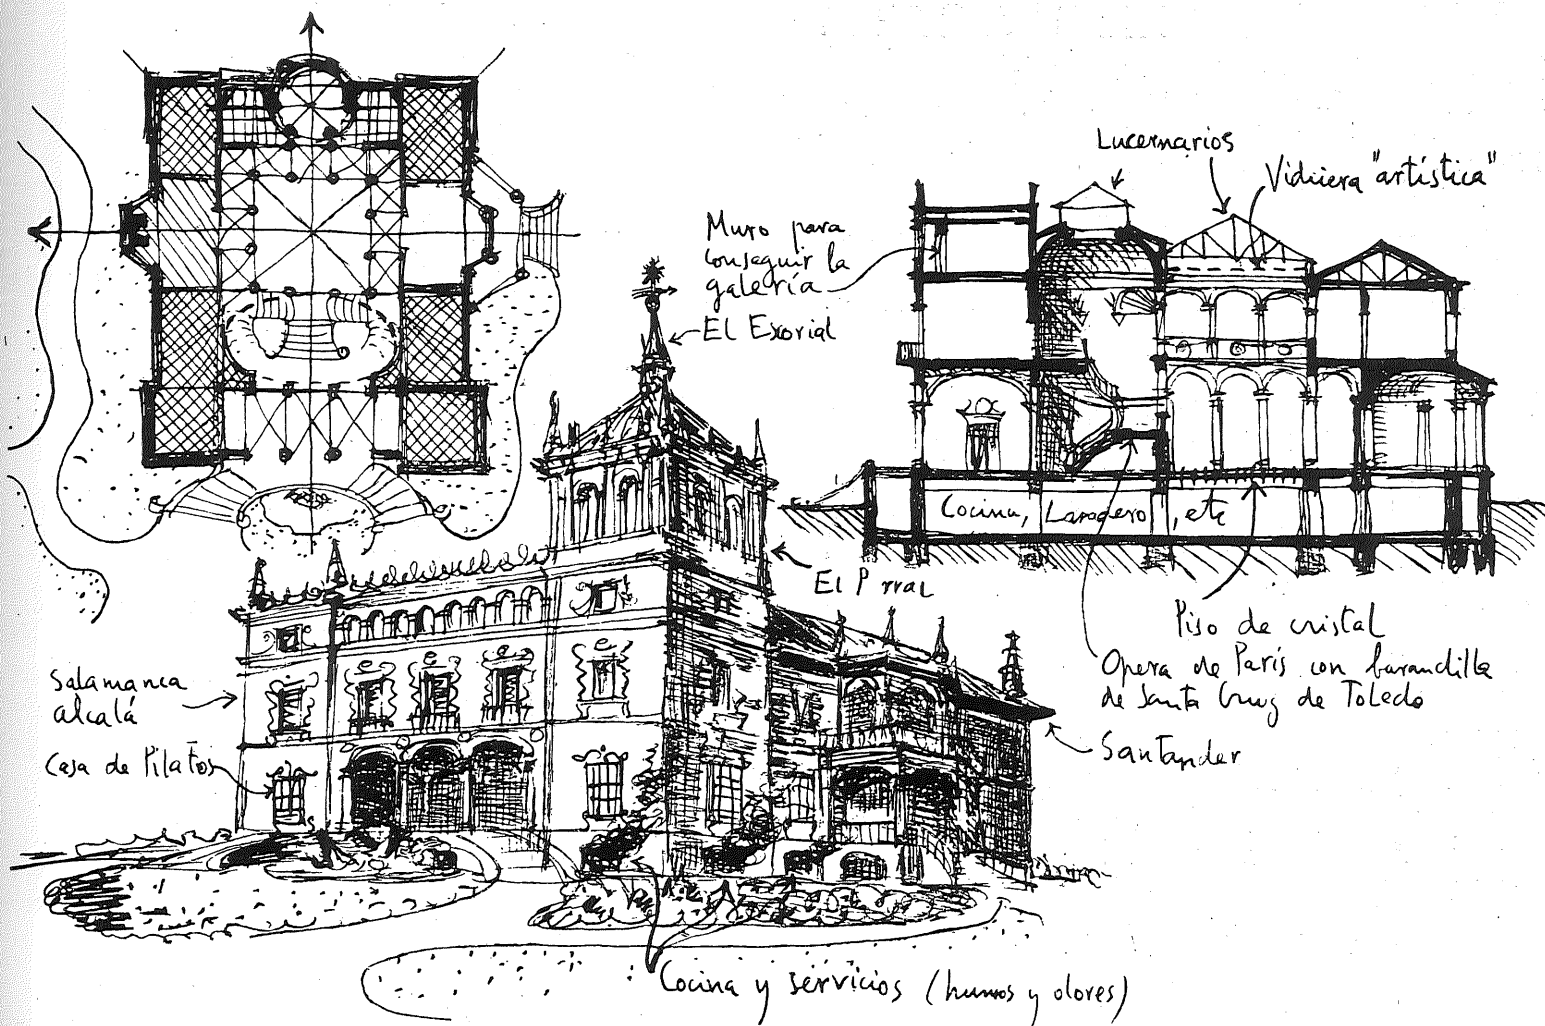 Lucernarios
Vidriera "artística"
Muro para
conseguir la
galería
El Escorial
Cocina, Lavadero, etc
El Parral
Piso de cristal
Opera de París con barandilla
de Santa Cruz de Toledo
Santander
Salamanca
alcalá
Casa de Pilatos
Cocina y servicios (humos y olores)